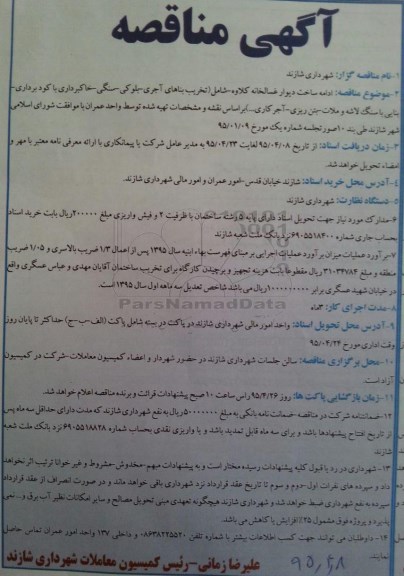 آگهی مناقصه
۱-نام مناقصه گزار: شهرداری شازند
۲-موضوع مناقصه: ادامه ساخت دیوار غسالخانه کلاوه-شامل(تخریب بناهای آجری-بلوکی-سنگی-خاکبرداری با کود برداری-
بنایی با سنگ لاشه و ملات-بتن ریزی-آجرکاری...)براساس نقشه و مشخصات تهیه شده توسط واحد عمران با موافقت شورای اسلامی
شهر شازند طی بند ۱۰صورتجلسه شماره یک مورخ ۹۵/۰۱/۰۹
۳-زمان دریافت اسناد: از تاریخ ۹۵/۰۴/۰۸ لغایت ۹۵/۰۴/۲۳ به مدیر عامل شرکت یا پیمانکاری با ارائه معرفی نامه معتبر با مهر و
امضاء تحویل خواهد شد.
۴-آدرس محل خرید اسناد: شازند خیابان قدس-امور عمران و امور مالی شهرداری شازند.
۵-دستگاه نظارت: شهرداری شازند
۶-مدارک مورد نیاز جهت تحویل اسناد دارای پایه ۵ رشته ساختمان با ظرفیت ۲ و فیش واریزی مبلغ ۲۰۰۰۰۰ریال بابت خرید اسناد
حساب جاری شماره ۶۹۰۵۵۱۸۴۰۰ نزد بانک ملت شعبه شازند
۷-برآورد عملیات میزان برآورد عملیات اجرایی بر مبنای فهرست بهاء ابنیه سال ۱۳۹۵ پس از اعمال ۱/۳ ضریب بالاسری و ۱/۰۵ ضریب
منطقه و مبلغ ریال مقطوعا بابت هزینه تجهیز و برچیدن کارگاه برای تخریب ساختمان آقایان مهدی و عباس عسگری واقع
در خیابان شهید عسگری برابر ۱۰۰۰۰۰۰۰۰ریال می باشد شاخص تعدیل سه ماهه اول سال ۱۳۹۵ است.
۸-مدت اجرای کار: ۳ماه
۹-آدرس محل تحویل اسناد: واحد امور مالی شهرداری شازند در پاکت در بسته شامل پاکت (الف-ب-ج) حداکثر تا پایان روز
وقت اداری مورخ ۹۵/۰۴/۲۴
۱۰-محل برگزاری مناقصه: سالن جلسات شهرداری شازند در حضور شهردار و اعضاء کمیسیون معاملات-شرکت در کمیسیون
آزاد است.
۱۱-زمان بازگشایی پاکت ها: روز ۹۵/۴/۲۶ راس ساعت ۱۰ صبح پیشنهادات قرائت و برنده مناقصه اعلام خواهد شد.
۱۲-ضمانتنامه شرکت در مناقصه ضمانت نامه بانکی به مبلغ ۵۰۰۰۰۰۰۰ریال به نفع شهرداری شازند که مدت دارای حداقل سه ماه پس
از تاریخ افتتاح پیشنهادها باشد و برای سه ماه قابل تمدید باشد و یا واریزی نقدی بحساب شماره ۶۹۰۵۵۱۸۸۲۸نزد بانک ملت شعبه
شازند
۱۳- شهرداری در رد یا قبول کلیه پیشنهادات رسیده مختار است و به پیشنهادات مبهم-مخدوش-مشروط و غیر خوانا ترتیب اثر نخواهد
داد و سپرده های نفرات اول-دوم و سوم تا تاریخ عقد قرارداد نزد شهرداری باقی خواهد ماند و در صورت انصراف از عقد قرارداد
سپرده به نفع شهرداری ضبط خواهد شد و شهرداری شازند هیچگونه تعهدی مبنی تحویل مصالح و سایر امکانات نظیر آب برق و...نمی
پذیرد و پروژه فوق مشمول ۲۵٪افزایش یا کاهش می باشد.
۱۴- داوطلبان می توانند جهت کسب اطلاعات بیشتر با شماره تلفن ۰۸۶۳۸۲۲۵۵۲۰ و داخلی ۱۳۷ واحد امور عمران تماس حاصل
نمایند.
علیرضا زمانی-رئیس کمیسیون معاملات شهرداری شازند
۹۵،۴،۸
ParsNamadData